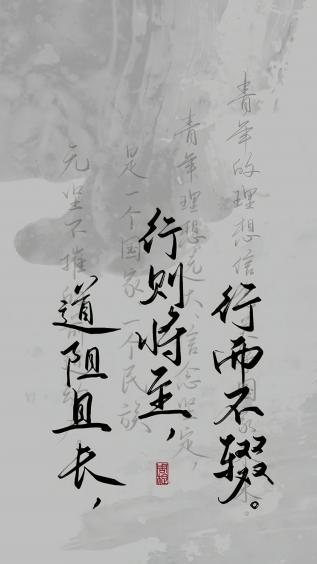 道阻且长，
行则将至，
行而不辍。
青年的理想信
青年理想远大、信念坚定，
是一个国家、一个民族
无坚不摧